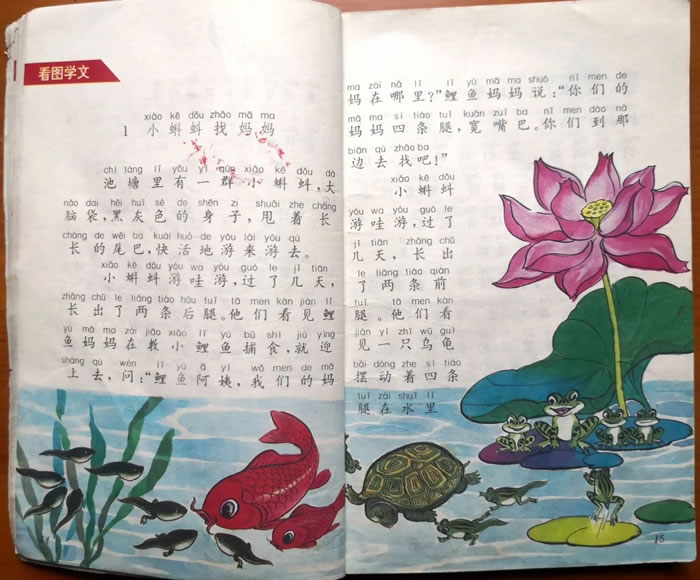 看图学文
xiǎo kē dǒu zhǎo mā ma
1 小蝌蚪找妈妈
chí táng lǐ yǒu yì qún xiǎo kē dǒu dà
池塘里有一群小蝌蚪，大
nǎo dai hēi huī sè de shēn zi shuǎi zhe cháng
脑袋，黑灰色的身子，甩着长
cháng de wěi ba kuài huó de yóu lái yóu qù
长的尾巴，快活地游来游去。
xiǎo kē dǒu yóu wa yóu guò le jǐ tiān
小蝌蚪游哇游，过了几天，
zhǎng chū le liǎng tiáo hòu tuǐ tā men kàn jiàn lǐ
长出了两条后腿。他们看见鲤
yú mā ma zài jiāo xiǎo lǐ yú bǔ shí jiù yíng
鱼妈妈在教小鲤鱼捕食，就迎
shàng qù wèn lǐ yú ā yí wǒ men de mā
上去，问：“鲤鱼阿姨，我们的妈
ma zài nǎ lǐ lǐ yú mā ma shuō nǐ men de
妈在哪里？”鲤鱼妈妈说：“你们的
mā ma sì tiáo tuǐ kuān zuǐ ba nǐ men dào nà
妈妈四条腿，宽嘴巴。你们到那
biān qù zhǎo ba
边去找吧！”
xiǎo kē dǒu
小蝌蚪
yóu wa yóu guò le
游哇游，过了
jǐ tiān zhǎng chū
几天，长出
le liǎng tiáo qián
了两条前
tuǐ tā men kàn
腿。他们看
jiàn yì zhī wū guī
见一只乌龟
bǎi dòng zhe sì tiáo
摆动着四条
tuǐ zài shuǐ lǐ
腿在水里
15